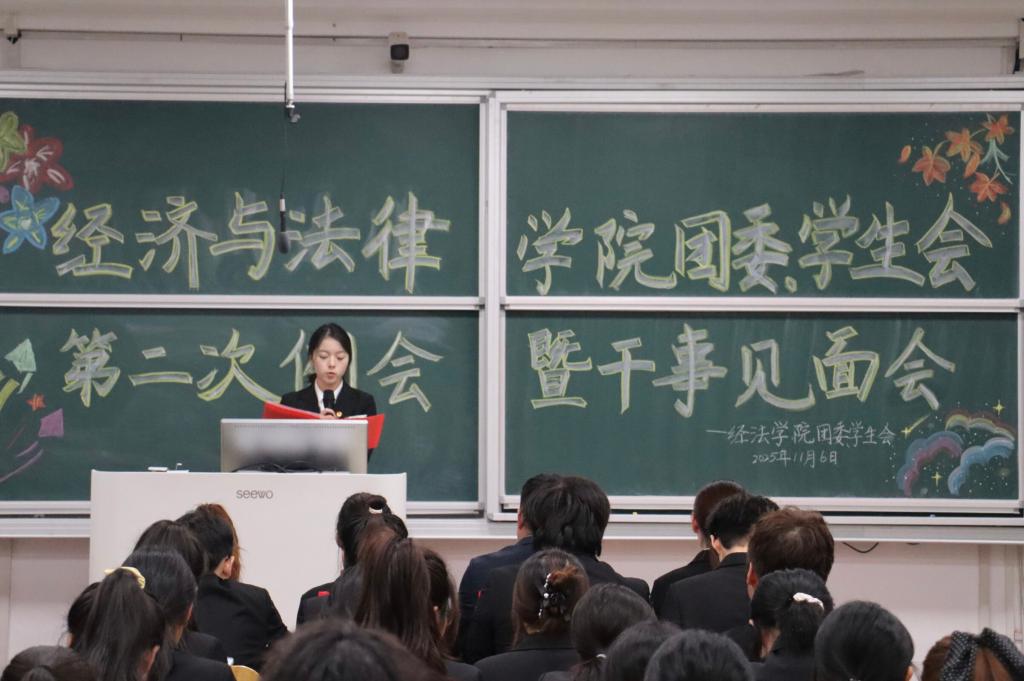 经济与法律学院团委、学生会
第二次例会暨干事见面会
—经法学院团委学生会
2025年11月6日
seewo